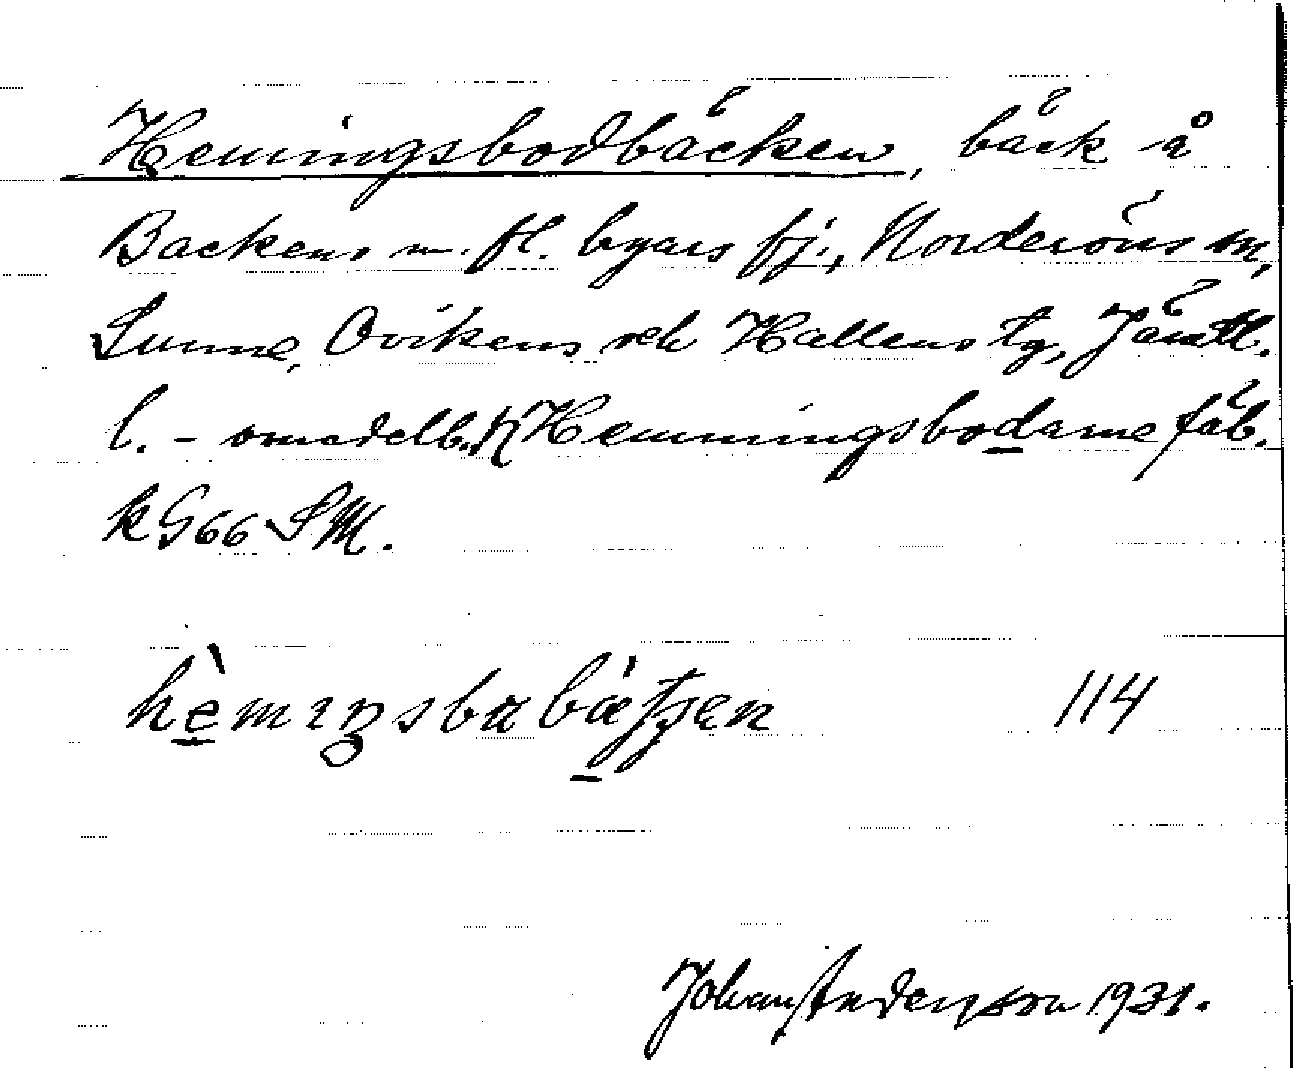 Hemingsbodbäcken, bäck å
Backens m. fl. byars fj., Norderöns sn,
Sunne, Ovikens och Hallens tg, Jämtl.
l. – omedelb. Hemmingsbodarne fäb.
k G66 SM.
hèmıŋsbɑbæ̀tʃen 114
Johan Anderson 1931.